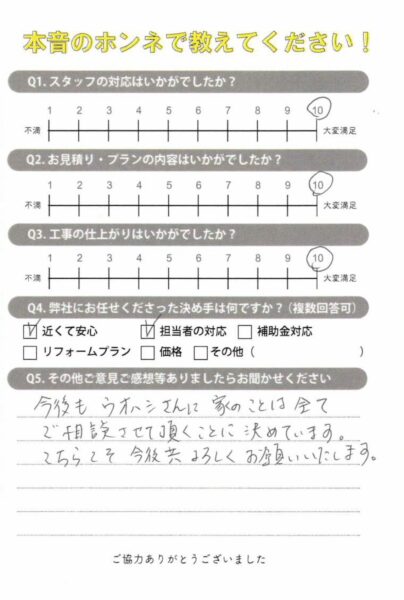 本音のホンネで教えてください！
Q1. スタッフの対応はいかがでしたか？
1 2 3 4 5 6 7 8 9 10
不満 大変満足
Q2. お見積り・プランの内容はいかがでしたか？
1 2 3 4 5 6 7 8 9 10
不満 大変満足
Q3. 工事の仕上がりはいかがでしたか？
1 2 3 4 5 6 7 8 9 10
不満 大変満足
Q4. 弊社にお任せくださった決め手は何ですか？（複数回答可）
近くて安心 担当者の対応 補助金対応
リフォームプラン 価格 その他（ ）
Q5. その他ご意見ご感想等ありましたらお聞かせください
今後も ウオハシさんに 家のことは 全て
ご相談させて頂くことに 決めています。
こちらこそ 今後共 よろしく お願いいたします。
ご協力ありがとうございました